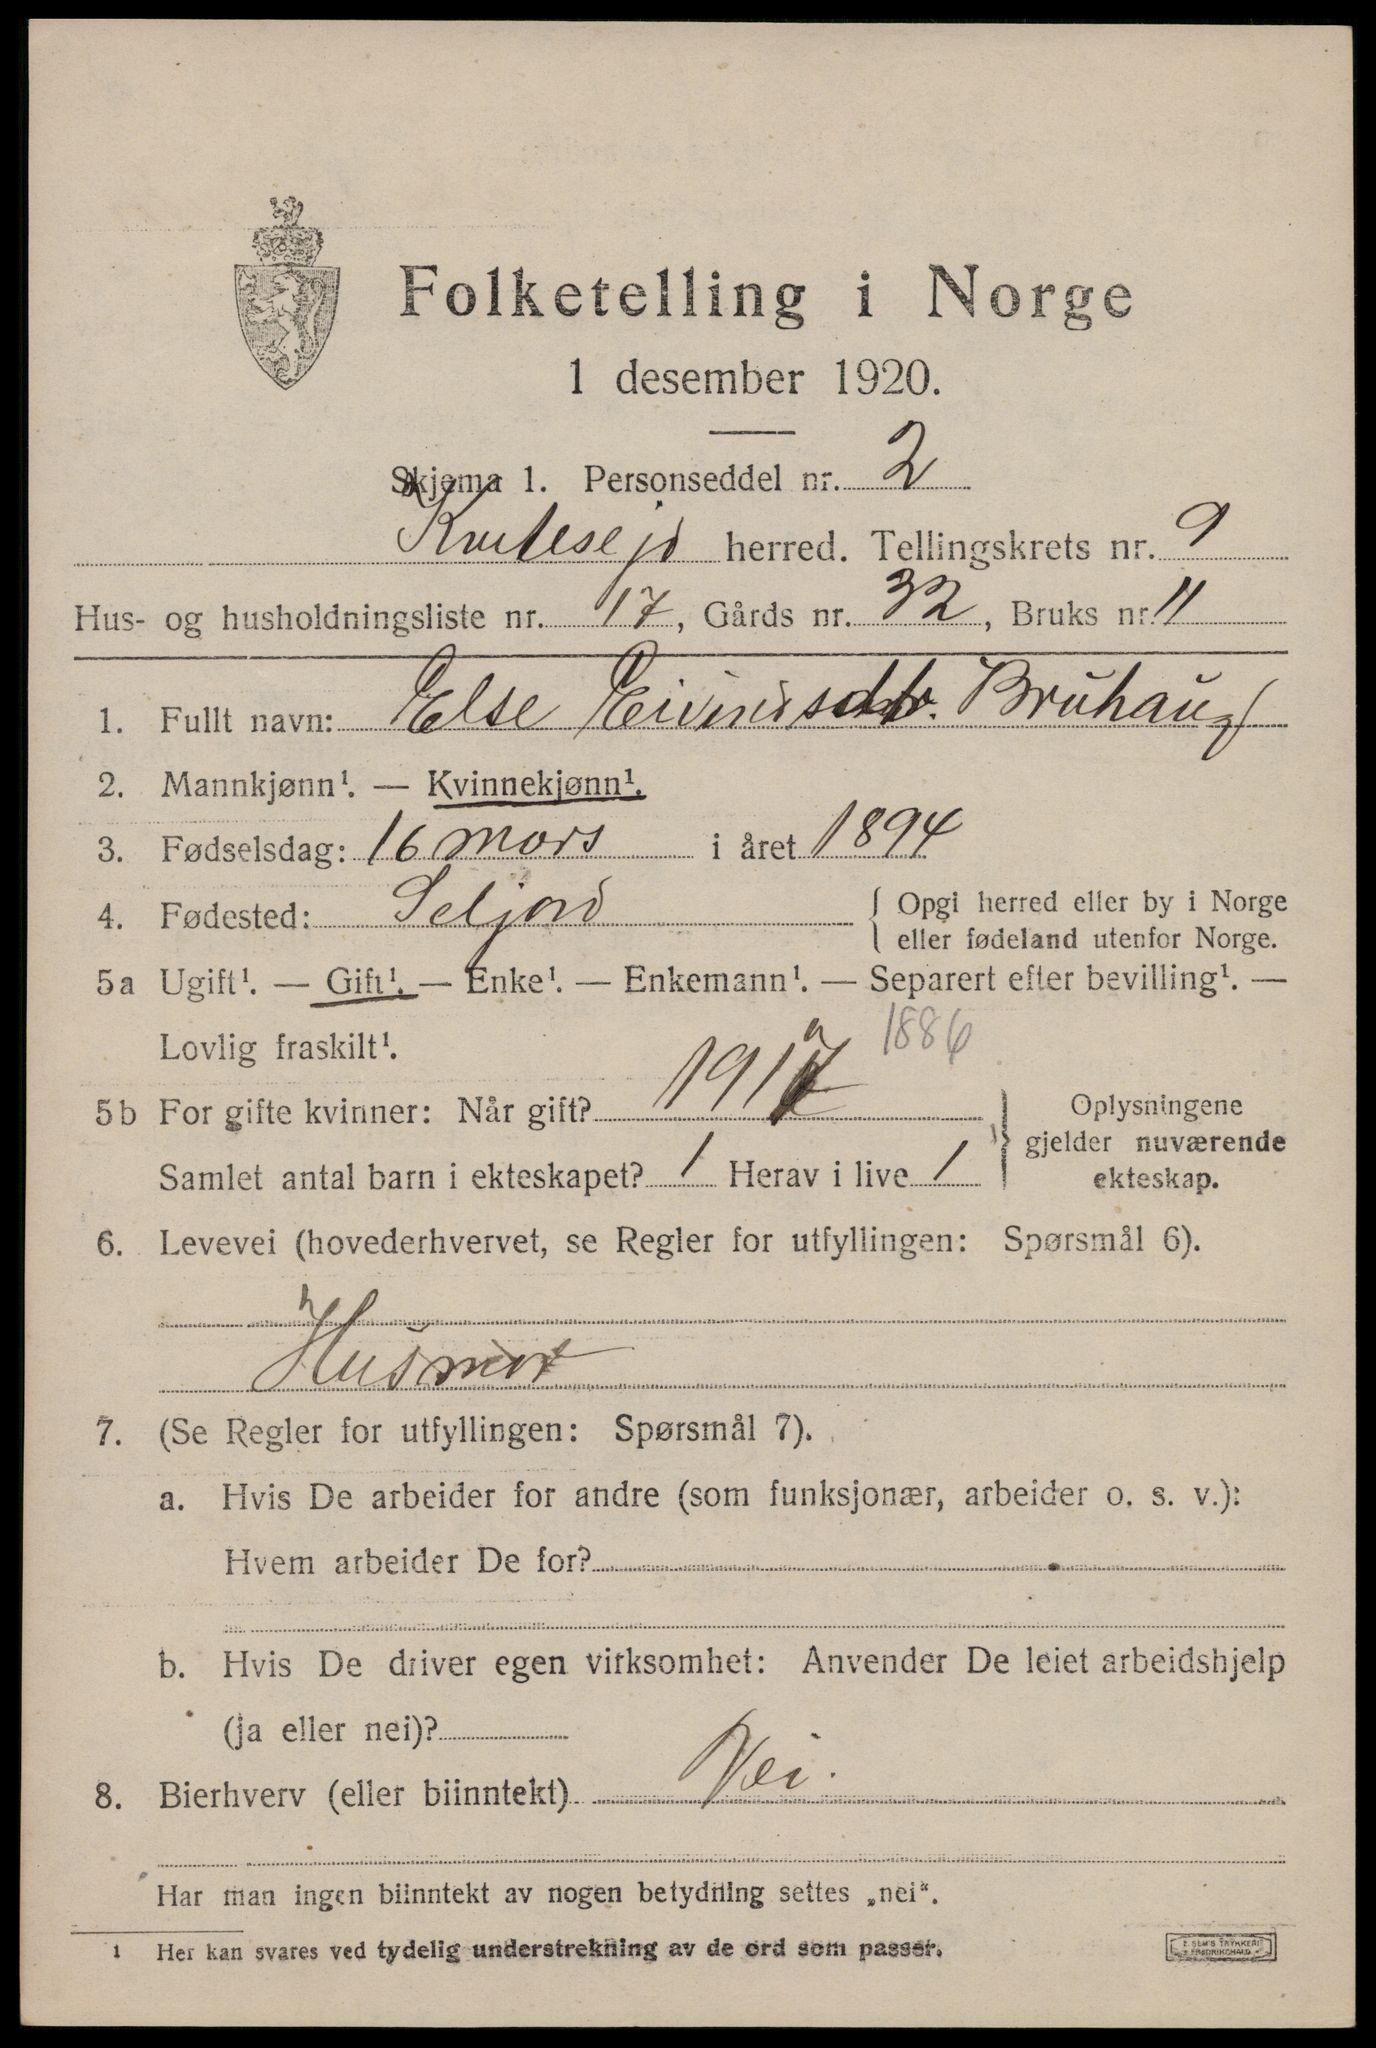 Folketelling i Norge
1 desember 1920.
Skjema 1. Personseddel nr. 2
Kvitesejd herred. Tellingskrets nr. 9
Hus- og husholdningsliste nr. 17, Gårds nr. 32, Bruks nr. 11
1. Fullt navn: Else Eivindsdtr. Bruhaug
2. Mannkjønn¹. — Kvinnekjønn¹.
3. Fødselsdag: 16 mars i året 1894
4. Fødested: Seljord { Opgi herred eller by i Norge
eller fødeland utenfor Norge.
5a Ugift¹. — Gift¹. — Enke¹. — Enkemann¹. — Separert efter bevilling¹. —
Lovlig fraskilt¹. 1886
5b For gifte kvinner: Når gift? 1917 Oplysningene
gjelder nuværende
Samlet antal barn i ekteskapet? 1 Herav i live 1 ekteskap.
6. Levevei (hovederhvervet, se Regler for utfyllingen: Spørsmål 6).
h
Husmor
7. (Se Regler for utfyllingen: Spørsmål 7).
a. Hvis De arbeider for andre (som funksjonær, arbeider o. s. v.):
Hvem arbeider De for?
b. Hvis De driver egen virksomhet: Anvender De leiet arbeidshjelp
(ja eller nei)?
8. Bierhverv (eller biinntekt) Nei.
Har man ingen biinntekt av nogen betydning settes „nei“.
1 Her kan svares ved tydelig understrekning av de ord som passer.
E. SEM'S TRYKKERI
FREDRIKSHALD